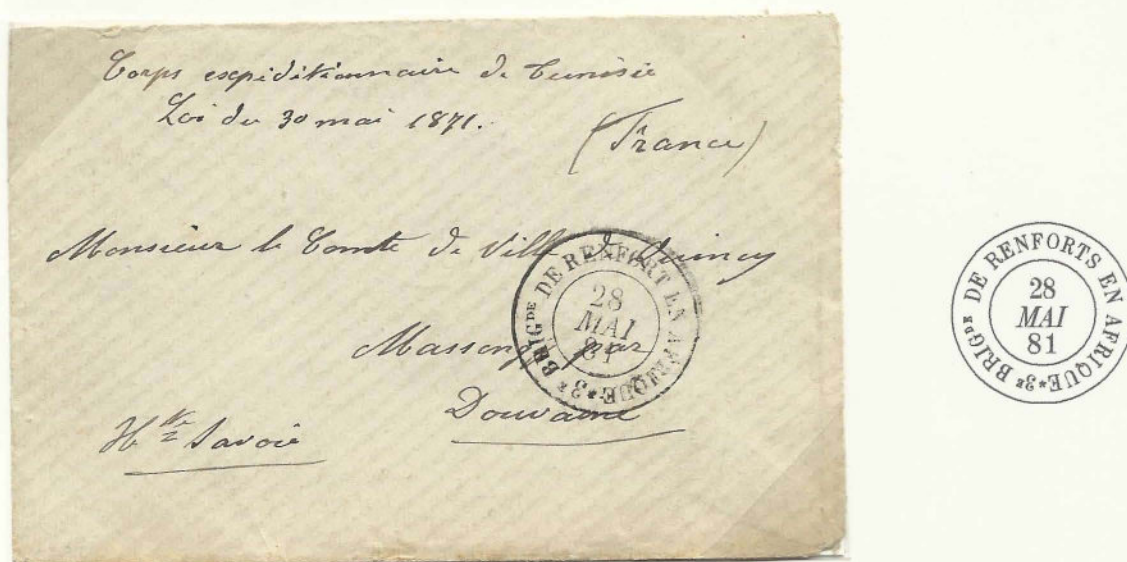 Corps expéditionnaire de Tunisie
Loi du 30 mai 1871.
(France)
Monsieur le Comte de Ville de Quincy
Massongy par
Douvaine
Hte Savoie
3E BRIGDE DE RENFORT EN AFRIQUE *
28
MAI
81
3E BRIGDE DE RENFORTS EN AFRIQUE *
28
MAI
81